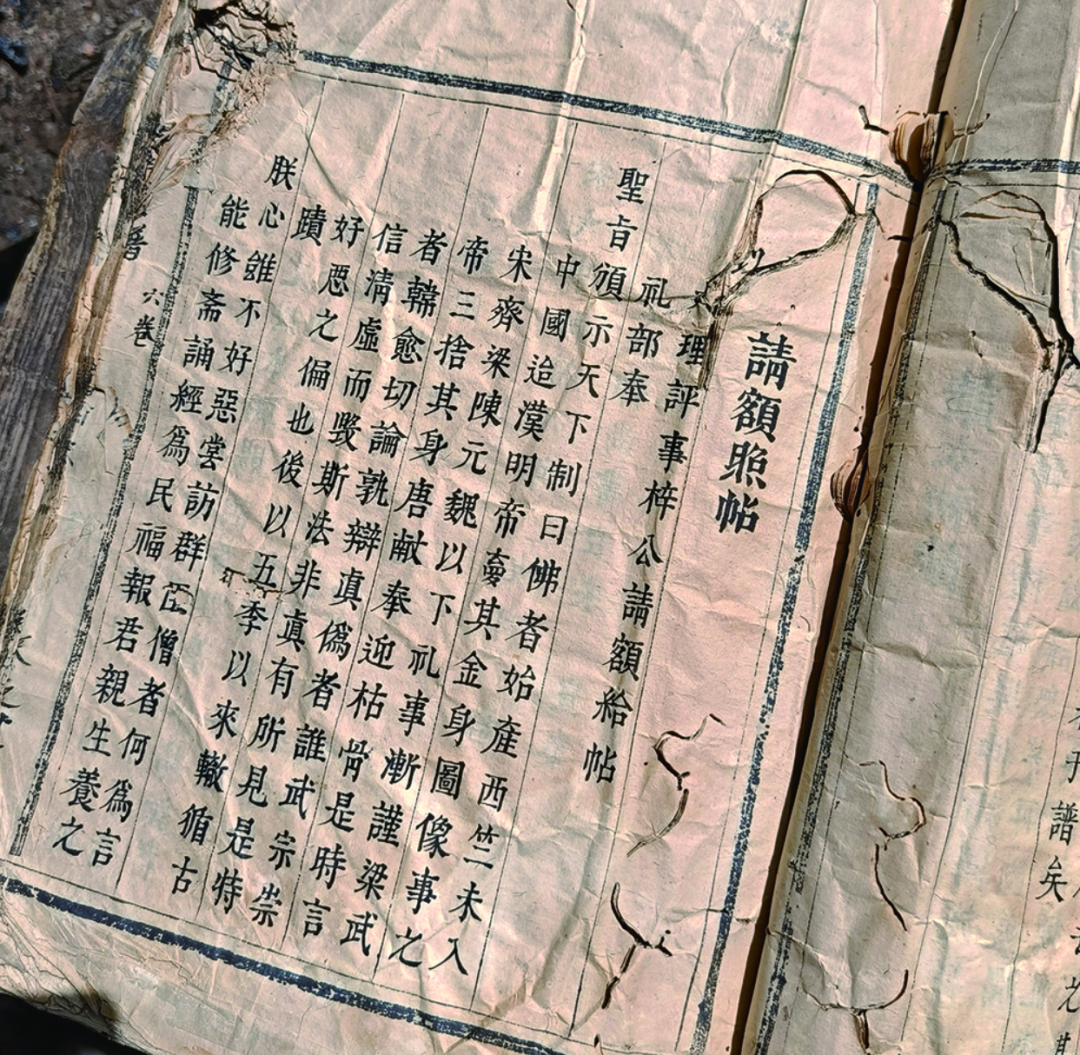 請額照帖
理評事梓公請額給帖
礼部奉
聖旨頒示天下制曰佛者始產西竺未入
中國迨漢明帝夣其金身圖像事之
宋齊梁陳元魏以下礼事漸謹梁武
帝三捨其身唐献奉迎枯骨是時言
者韓愈切論孰辯真偽者誰武宗崇
信淸虛而毀斯法非真有所見是特
好惡之偏也後以五季以來轍循古
蹟
朕心雖不好惡嘗訪群臣僧者何爲言
能修斋誦經爲民福報君親生養之
六卷
譜矣